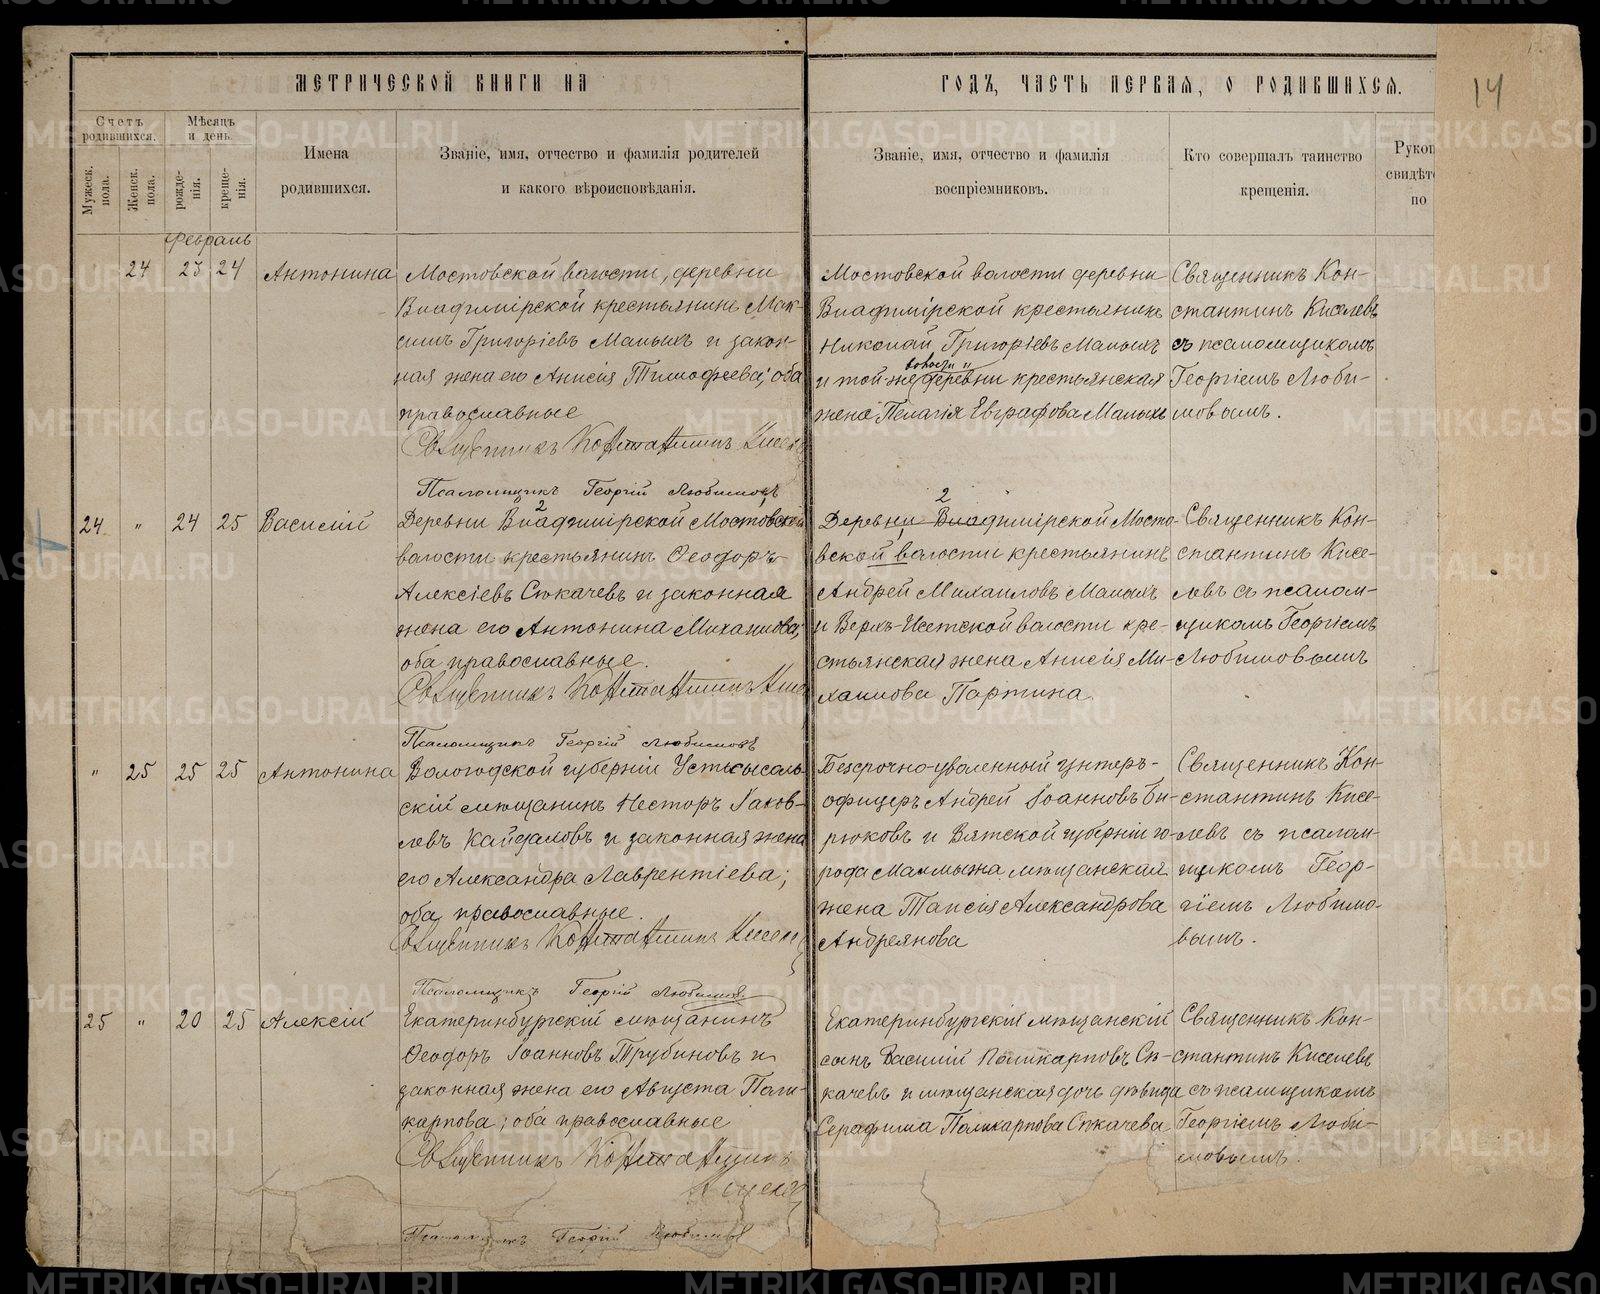 МЕТРИЧЕСКОЙ КНИГИ НА
ГОДЪ, ЧАСТЬ ПЕРВАЯ, О РОДИВШИХСЯ.
14
Счетъ родившихся.
Мужеск. пола.
Женск. пола.
Мѣсяцъ и день.
рожде-
нія.
креще-
нія.
Имена
родившихся.
Званіе, имя, отчество и фамилія родителей
и какого вѣроисповѣданія.
Званіе, имя, отчество и фамилія
воспріемниковъ.
Кто совершалъ таинство
крещенія.
Рукоп
свидѣте
по
Февраль
24 23 24 Антонина
Мостовской волости, деревни
Владимірской крестьянинъ Мак-
симъ Григоріевъ Малыхъ и закон-
ная жена его Анисія Тимофеева; оба
православные
Священникъ Константинъ Кисел
Псаломщикъ Георгій Любимовъ
Мостовской волости деревни
Владимірской крестьянинъ
Николай Григоріевъ Малыхъ
и той-же волости деревни крестьянская
жена Пелагія Евграфова Малыхъ
Священникъ Кон-
стантинъ Киселевъ
съ псаломщикомъ
Георгіемъ Люби-
мовымъ.
24 " 24 25 Василій
Деревни 2 Владимірской Мостовской
волости крестьянинъ Ѳеодоръ
Алексіевъ Сюкачевъ и законная
жена его Антонина Михаилова;
оба православные.
Священникъ Константинъ Кисе
Псаломщикъ Георгій Любимовъ
Деревни 2 Владимірской Мосто-
вской волости крестьянинъ
Андрей Михаиловъ Малыхъ
и Верхъ-Исетской волости кре-
стьянская жена Анисія Ми-
хаилова Партина
Священникъ Кон-
стантинъ Кисе-
левъ съ псалом-
щикомъ Георгіемъ
Любимовымъ
" 25 25 25 Антонина
Вологодской губерніи Устьсысоль-
скій мѣщанинъ Несторъ Іаков-
левъ Кайдаловъ и законная жена
его Александра Лаврентіева;
оба православные.
Священникъ Константинъ Киселе
Псаломщикъ Георгій Любимовъ
Безсрочно-уволенный унтеръ-
офицеръ Андрей Іоанновъ Би-
рюковъ и Вятской губерніи го-
рода Малмыжа мѣщанская
жена Таисія Александрова
Андреянова
Священникъ Кон-
стантинъ Кисе-
левъ съ псалом-
щикомъ Геор-
гіемъ Любимо-
вымъ.
25 " 20 25 Алексій
Екатеринбургскій мѣщанинъ
Ѳеодоръ Іоанновъ Трубиновъ и
законная жена его Августа Поли-
карпова; оба православные
Священникъ Константинъ
Киселев
Псаломщикъ Георгій Любимовъ
Екатеринбургскій мѣщанскій
сынъ Василій Поликарповъ Сѣ-
качевъ и мѣщанская дочь дѣвица
Серафима Поликарпова Сѣкачева
Священникъ Кон-
стантинъ Киселевъ
съ псаломщикомъ
Георгіемъ Люби-
мовымъ.
METRIKI.GASO-URAL.RU